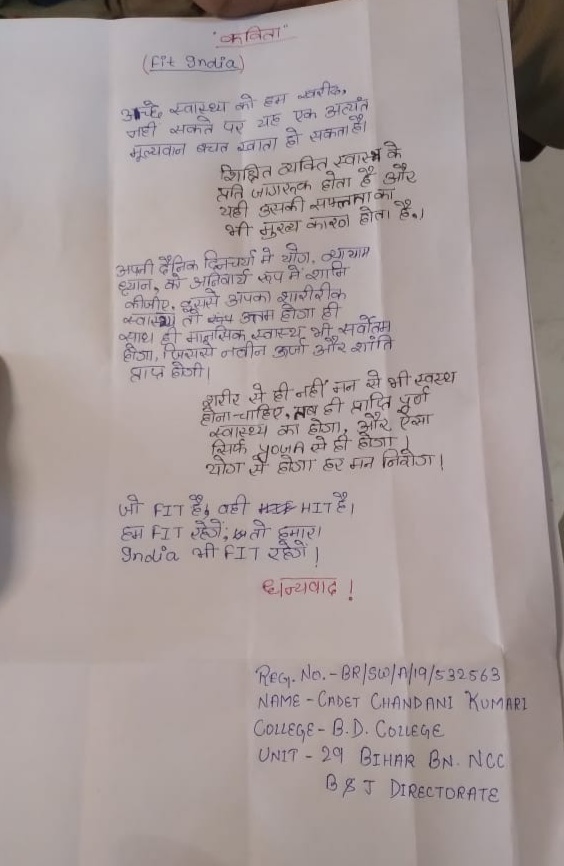 "कविता"
(Fit India)
अच्छे स्वास्थ्य को हम खरीद,
नही सकते पर यह एक अत्यंत
मूल्यवान बचत खाता हो सकता है।
शिक्षित व्यक्ति स्वास्थ के
प्रति जागरूक होता है और
यही उसकी सफलता का
भी मुख्य कारण होता है।
अपनी दैनिक दिनचर्या मे योग, व्यायाम
ध्यान, को अनिवार्य रूप में शामि
कीजीए, इससे आपका शारीरीक
स्वास्थ्य तो उत्तम होगा ही
साथ ही मानसिक स्वास्थ्य भी सर्वोतम
होगा, जिससे नवीन ऊर्जा और शांति
प्राप्त होगी।
शरीर से ही नहीं मन से भी स्वस्थ
होना चाहिए, तब ही प्राप्ति पूर्ण
स्वास्थ्य का होगा, और ऐसा
सिर्फ से ही होगा।
योग से होगा हर मन निरोग।
जो FIT है, वही HIT है।
हम FIT रहेगें, तो हमारा
India भी FIT रहेगें।
धन्यवाद!
REG. NO. - BR/SW/A/19/532563
NAME - CADET CHANDANI KUMARI
COLLEGE - B.D. COLLEGE
UNIT - 29 BIHAR BN. NCC
B & J DIRECTORATE